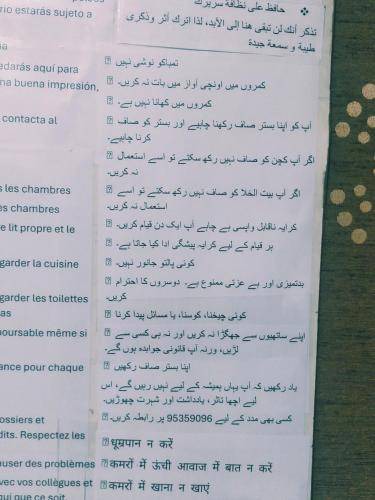 rio estarás sujeto a
edarás aquí para
na buena impresión,
contacta al
s les chambres
es chambres
e lit propre et le
garder la cuisine
garder les toilettes
as
oursable même si
ance pour chaque
ossiers et
dits. Respectez les
user des problèmes
vec vos collègues et
qui que ce soit
❖ حافظ على نظافة سريرك
تذكر أنك لن تبقى هنا إلى الأبد، لذا اترك أثر وذكرى
طيبة و سمعة جيدة
تمباکو نوشی نہیں
کمروں میں اونچی آواز میں بات نہ کریں۔
کمروں میں کھانا نہیں ہے۔
آپ کو اپنا بستر صاف رکھنا چاہیے اور بستر کو صاف
کرنا چاہیے۔
اگر آپ کچن کو صاف نہیں رکھ سکتے تو اسے استعمال
نہ کریں۔
اگر آپ بیت الخلا کو صاف نہیں رکھ سکتے تو اسے
استعمال نہ کریں۔
کرایہ ناقابل واپسی ہے چاہے آپ ایک دن قیام کریں۔
ہر قیام کے لیے کرایہ پیشگی ادا کیا جاتا ہے۔
کوئی پالتو جانور نہیں۔
بدتمیزی اور بے عزتی ممنوع ہے۔ دوسروں کا احترام
کریں۔
کوئی چیخنا، کوسنا، یا مسائل پیدا کرنا
اپنے ساتھیوں سے جھگڑا نہ کریں اور نہ ہی کسی سے
لڑیں، ورنہ آپ قانونی جوابدہ ہوں گے۔
اپنا بستر صاف رکھیں
یاد رکھیں کہ آپ یہاں ہمیشہ کے لیے نہیں رہیں گے، اس
لیے اچھا تاثر، یادداشت اور شہرت چھوڑیں۔
کسی بھی مدد کے لیے 95359096 پر رابطہ کریں۔
धूम्रपान न करें
कमरों में ऊंची आवाज में बात न करें
कमरों में खाना न खाएं